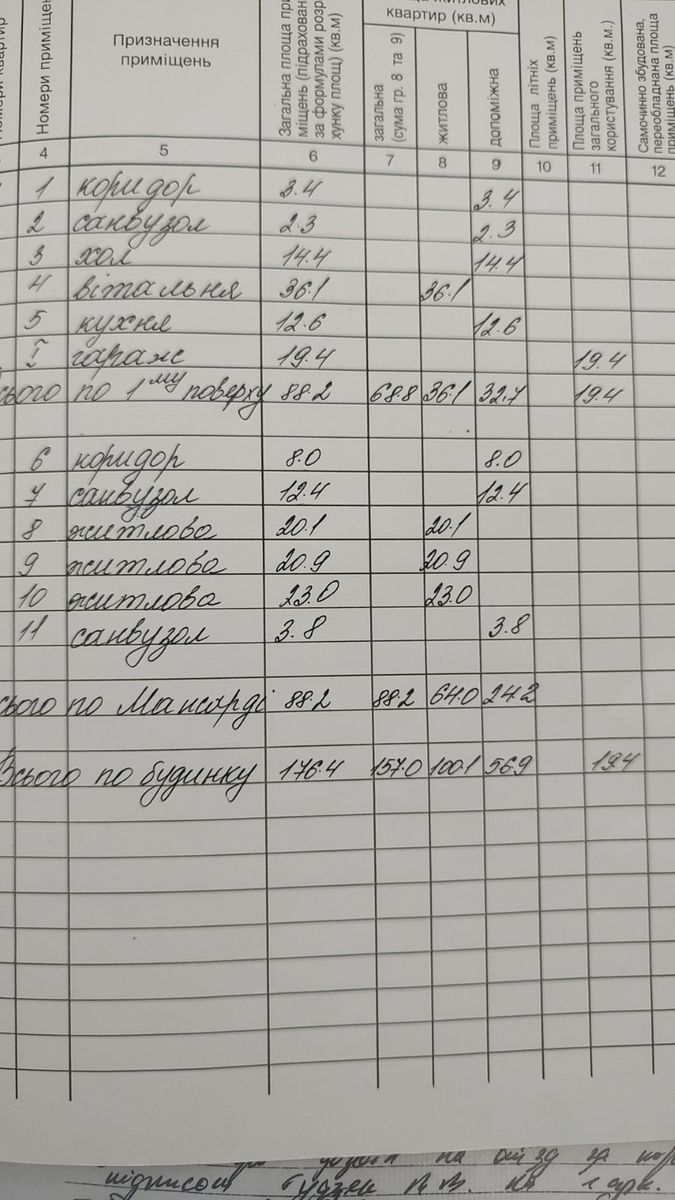 Номери приміщень
Призначення приміщень
Загальна площа при-
міщень (підрахована
за формулами розра-
хунку площ) (кв.м)
квартир (кв.м)
загальна
(сума гр. 8 та 9)
житлова
допоміжна
Площа літніх
приміщень (кв.м)
Площа приміщень
загального
користування (кв.м.)
Самочинно збудована,
переобладнана площа
приміщень (кв.м)
4 5 6 7 8 9 10 11 12
1 коридор 3.4 3.4
2 санвузол 2.3 2.3
3 хол 14.4 14.4
4 вітальня 36.1 36.1
5 кухня 12.6 12.6
I гараж 19.4 19.4
сього по 1му поверху 88.2 68.8 36.1 32,7 19.4
6 коридор 8.0 8.0
7 санвузол 12.4 12.4
8 житлова 20.1 20.1
9 житлова 20.9 20.9
10 житлова 23.0 23.0
11 санвузол 3.8 3.8
сього по Мансарді 88.2 88.2 64.0 24.2
Всього по будинку 176.4 157.0 100.1 56.9 19.4